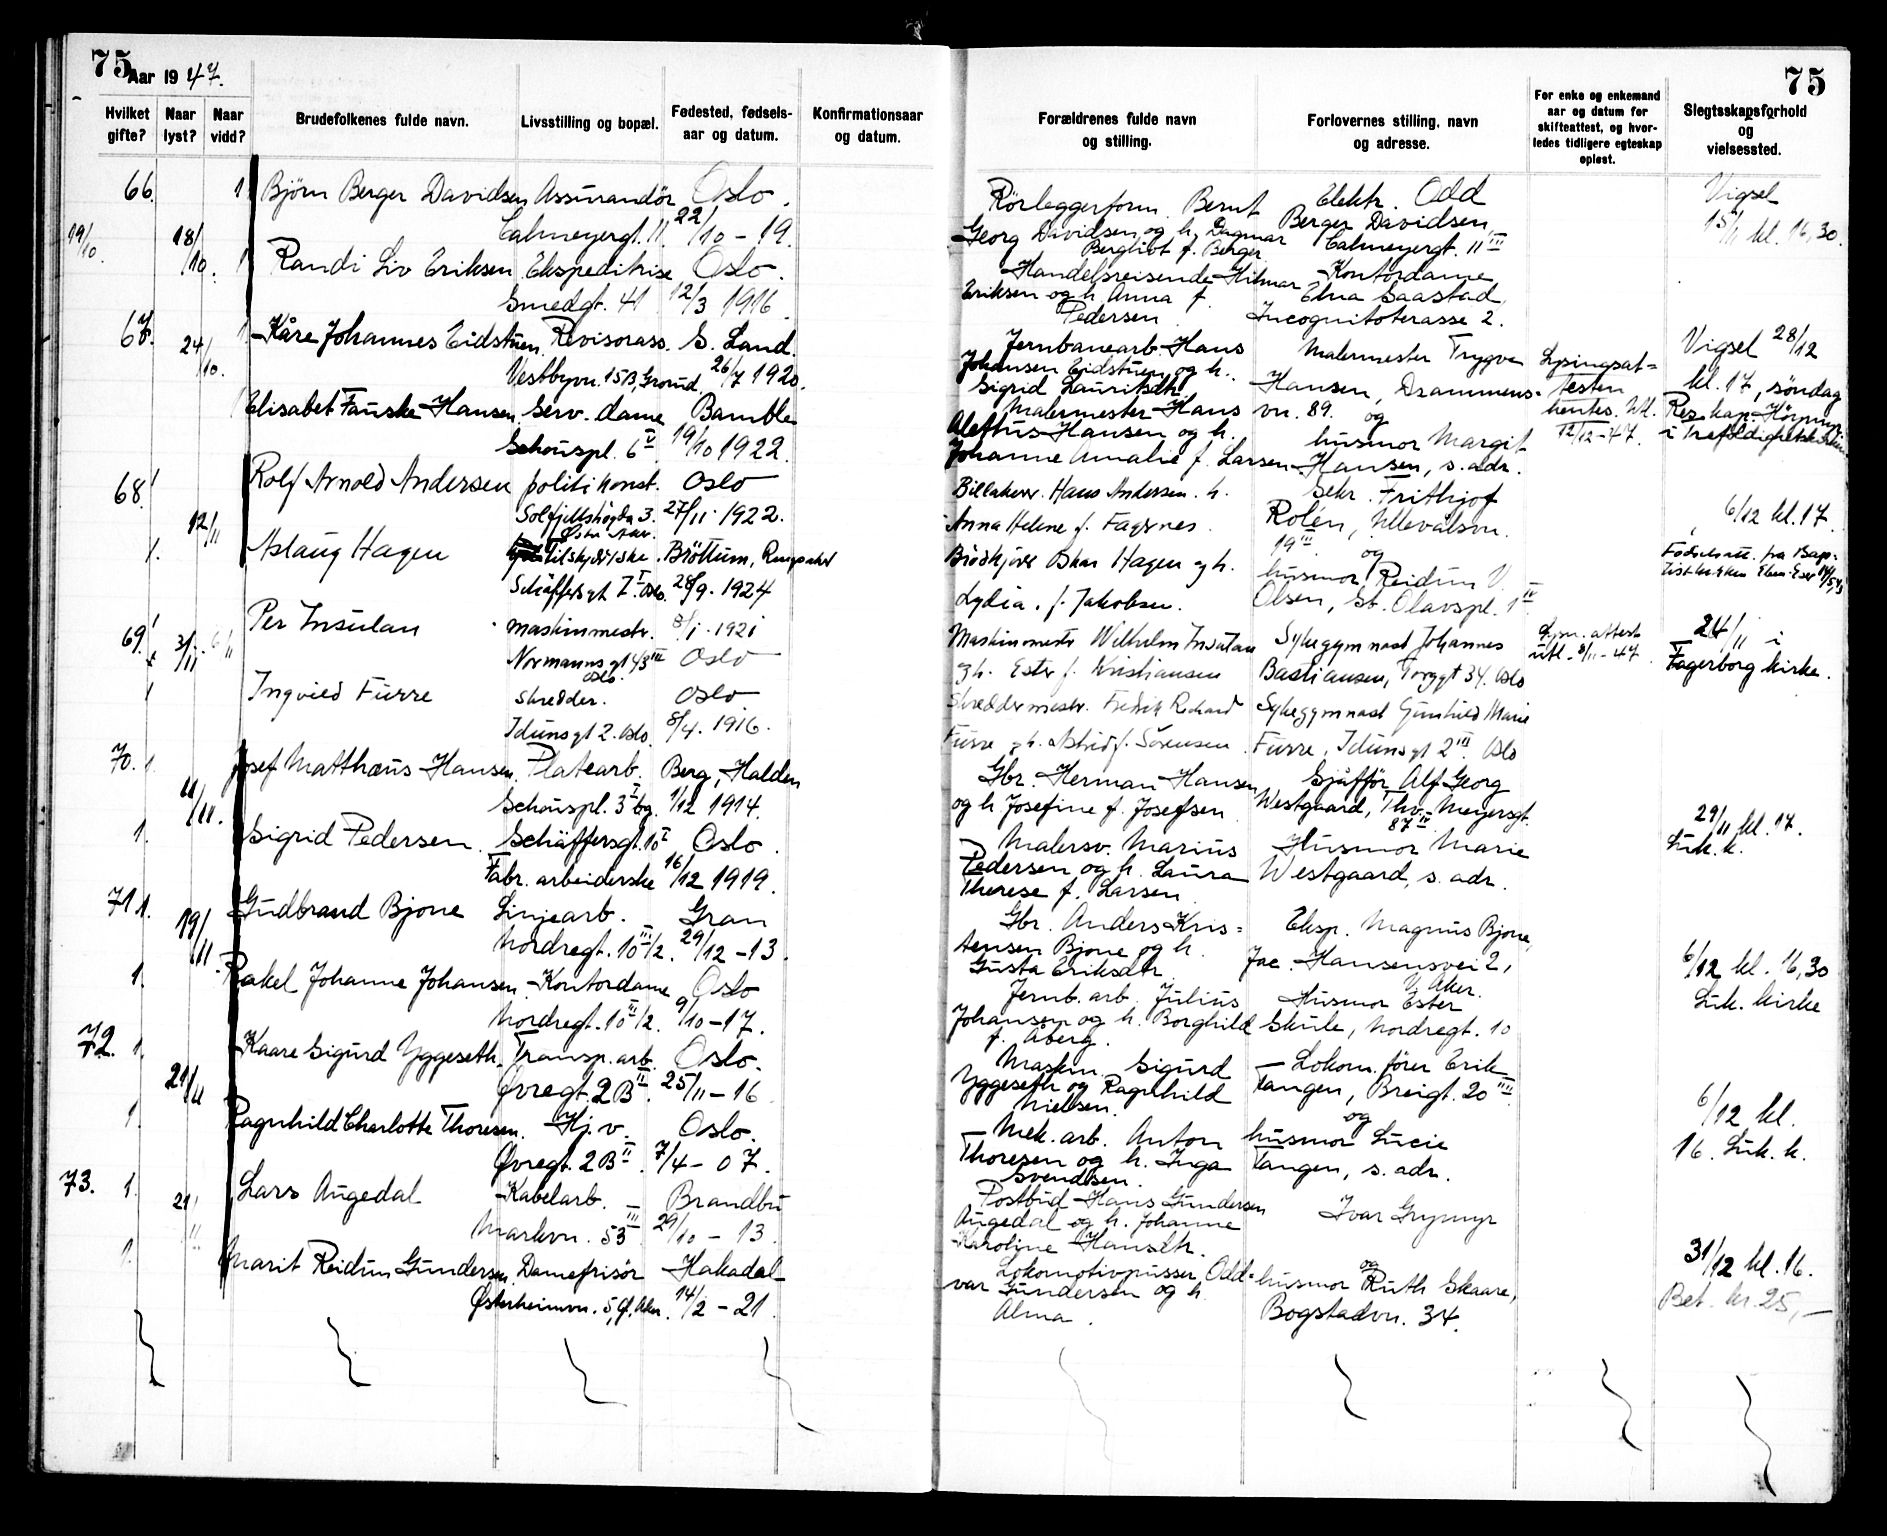 75 Aar 1947.
Hvilket gifte?
Naar lyst?
Naar vidd?
Brudefolkenes fulde navn.
Livsstilling og bopæl.
Fødested, fødsels-
aar og datum.
Konfirmationsaar
og datum.
66. 1 Bjørn Berger Davidsen Assurandør Oslo.
19/10. 18/10. Calmeyergt. 11. 22/10 - 19.
1 Randi Liv Eriksen Ekspeditrise Oslo.
Smedgt. 41 12/3 1916.
67. 1 Kåre Johannes Eidstuen. Revisorass. S. Land.
24/10. Vestbyvn. 15B, Grorud. 26/7 1920.
1 Elisabet Fauske Hansen. Serv. dame Bamble
Schouspl. 6 V 19/10 1922.
68. Rolf Arnold Andersen politikonst. Oslo
12/11 Solfjellshøgda 3. 27/11. 1922.
Østre Aker.
1. Aslaug Hagen tilskjærske. Brøttum, Ringsaker
Schäffersgt 7 I. Oslo. 28/9. 1924
69. Per Insulan maskinmestr. 8/1. 1921
3/11 Normannsgt 43 III Oslo
Oslo.
1 Ingvild Furre skredder. Oslo
Idunsgt 2. Oslo. 8/4. 1916.
70. 1. Josef Matthæus Hansen. Platearb. Berg, Halden
11/11. Schouspl. 3 I bg. 1/12 1914.
1. Sigrid Pedersen. Schäffersgt. 10 I Oslo.
Fabr. arbeiderske 16/12 1919.
71 1. Gudbrand Bjone Linjearb. Gran
19/11. Nordregt. 10 III/2. 29/12 - 13.
1. Rakel Johanne Johansen Kontordame Oslo
Nordregt. 10 III/2. 9/10 - 17.
72. 1. Kaare Sigurd Yggeseth. Transp. arb. Oslo.
21/11 Øvregt. 2 B II. 25/11 - 16
1. Ragnhild Charlotte Thoresen. Hj. v. Oslo.
Øvregt. 2 B II. 7/4 - 07.
73. 1. Lars Augedal Kabelarb. Brandbu
21/11 Markvn. 53 III 29/10 - 13.
1. Marit Reidun Gundersen. Damefrisør Hakadal
Østerheimvn. 5, Ø. Aker. 14/2 - 21.
75
Forældrenes fulde navn
og stilling.
Forlovernes stilling, navn
og adresse.
For enke og enkemand
aar og datum for
skifteattest, og hvor-
ledes tidligere egteskap
opløst.
Slegtsskapsforhold
og
vielsessted.
Rørleggerform. Bernt Elektr. Odd Vigsel
Georg Davidsen og h. Dagmar Berger Davidsen, 15/11 kl. 16,30.
Bergliot f. Berger. Calmeyergt. 11 III
Handelsreisende Hilmar Kontordame
Eriksen og h. Anna f. Elna Saastad,
Pedersen. Incognitoterasse 2.
Jernbanearb. Hans Malermester Trygve Lysingsat- Vigsel 28/12
Johansen Eidstuen og h. Hansen, Drammens- testen kl. 17, søndag
Sigrid Lauritsdtr. vn. 89. og hentes. Res. kap.
Malermester Hans husmor Margit 12/12-47. i Trefoldighetskirken
Alethus Hansen og h. Hansen, s. adr.
Johanne Amalie f. Larsen.
Hans Andersen. h. Sekr. Frithjof 6/12 kl. 17
Anna Helene f. Fagernes. Rolén, Ullevålsvn.
19 III og
Brødkjører Oskar Hagen og h. husmor Reidun V. Fødselsatt. fra Bap-
Lydia. f. Jakobsen. Olsen, St. Olavspl. 1 IV
Maskinmestr Wilhelm Insulan Sykegymnast Johannes Lysn. attest 24/11 i
og h. Ester f. Kristiansen Bastiansen, Torggt 34. Oslo utl. 8/11-47 Fagerborg kirke.
Skreddermestr. Fredrik Richard Sykegymnast Gunhild Marie
Furre og h. Astrid f. Sørensen Furre, Idunsgt 2 III Oslo
Gbr. Herman Hansen Sjåffør Alf Georg
og h Josefine f. Josefsen Westgaard, Thv. Meyersgt. 29/11 kl. 17.
87 III
Malersv. Marius Husmor Marie Luk. k.
Pedersen og h. Laura Westgaard, s. adr.
Therese f. Larsen
Gbr. Anders Kris- Eksp. Magnus Bjone,
tensen Bjone og h. Jac. Hansensvei 2, 6/12 kl. 16,30
Gusta Eriksdtr. V. Aker.
Jernb. arb. Julius Husmor Ester Luk. kirke
Johansen og h. Borghild Skule, Nordregt. 10
f. Åberg.
Maskin. Sigurd Lokom. fører Erik
Yggeseth og Ragnhild Tangen, Breigt. 20 III 6/12 kl.
Nielsen. og
Mek. arb. Anton husmor Lucie 16. Luk. k.
Thoresen og h. Inga Tangen, s. adr.
Svendsen.
Postbud Hans Gundersen Ivar Grymyr
Augedal og h. Johanne
Karoline Hansdtr. og 31/12 kl. 16.
Lokomotivpusser Odd- husmor Ruth Skaare, Bet. kr. 25,-
var Gundersen og h. Bogstadvn. 34.
Alma.